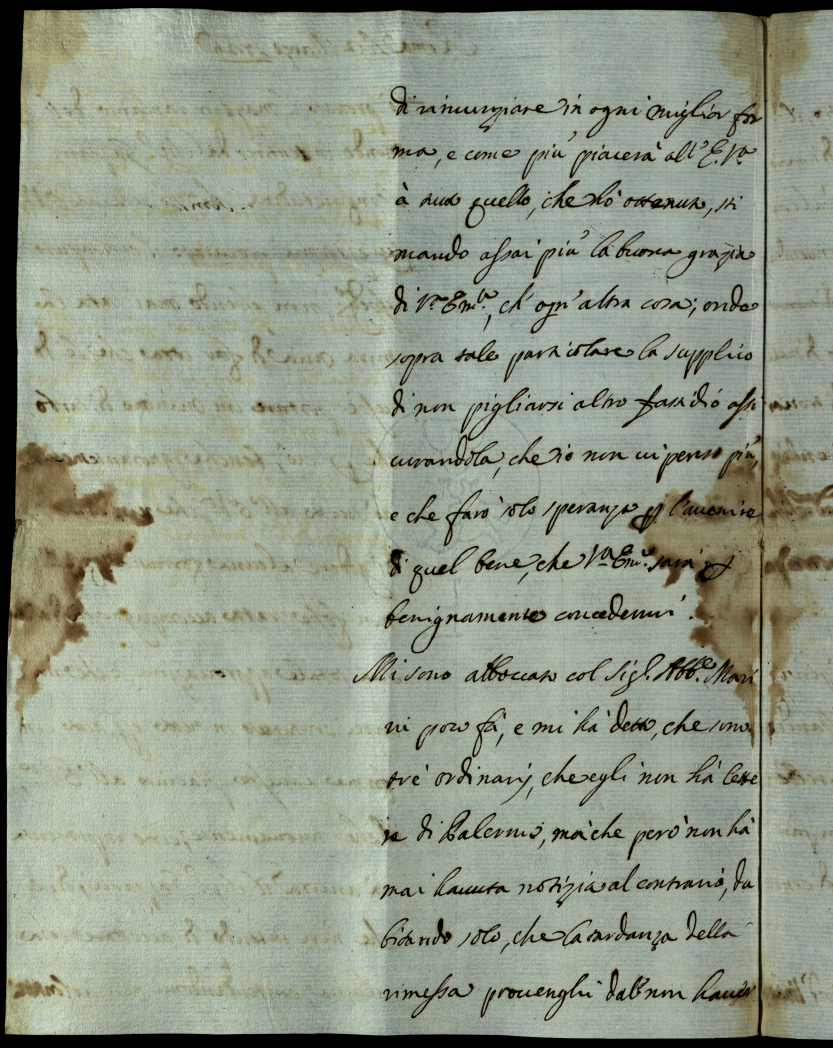 di rinunziare in ogni miglior for
ma, e come più piacerà all'E. Vra
à tutto quello, che hò ottenuto, sti
mando assai più la buona grazia
di Vra Emza, ch'ogn'altra cosa; onde
sopra tale particolare la supplico
di non pigliarsi altro fastidio assi
curandola, che io non ci penso più,
e che farò solo speranza p l'auenire
di quel bene, che Vra Emza sarà p
benignamente concedermi.
Mi sono abboccato col Sigr. Abbe. Mari
ni poco fà, e mi hà detto, che sono
trè ordinarij, che egli non hà lette
re di Palermo, mà che però non hà
mai hauuta notizia al contrario, du
bitando solo, che la tardanza della
rimessa prouenghi dal non hauer